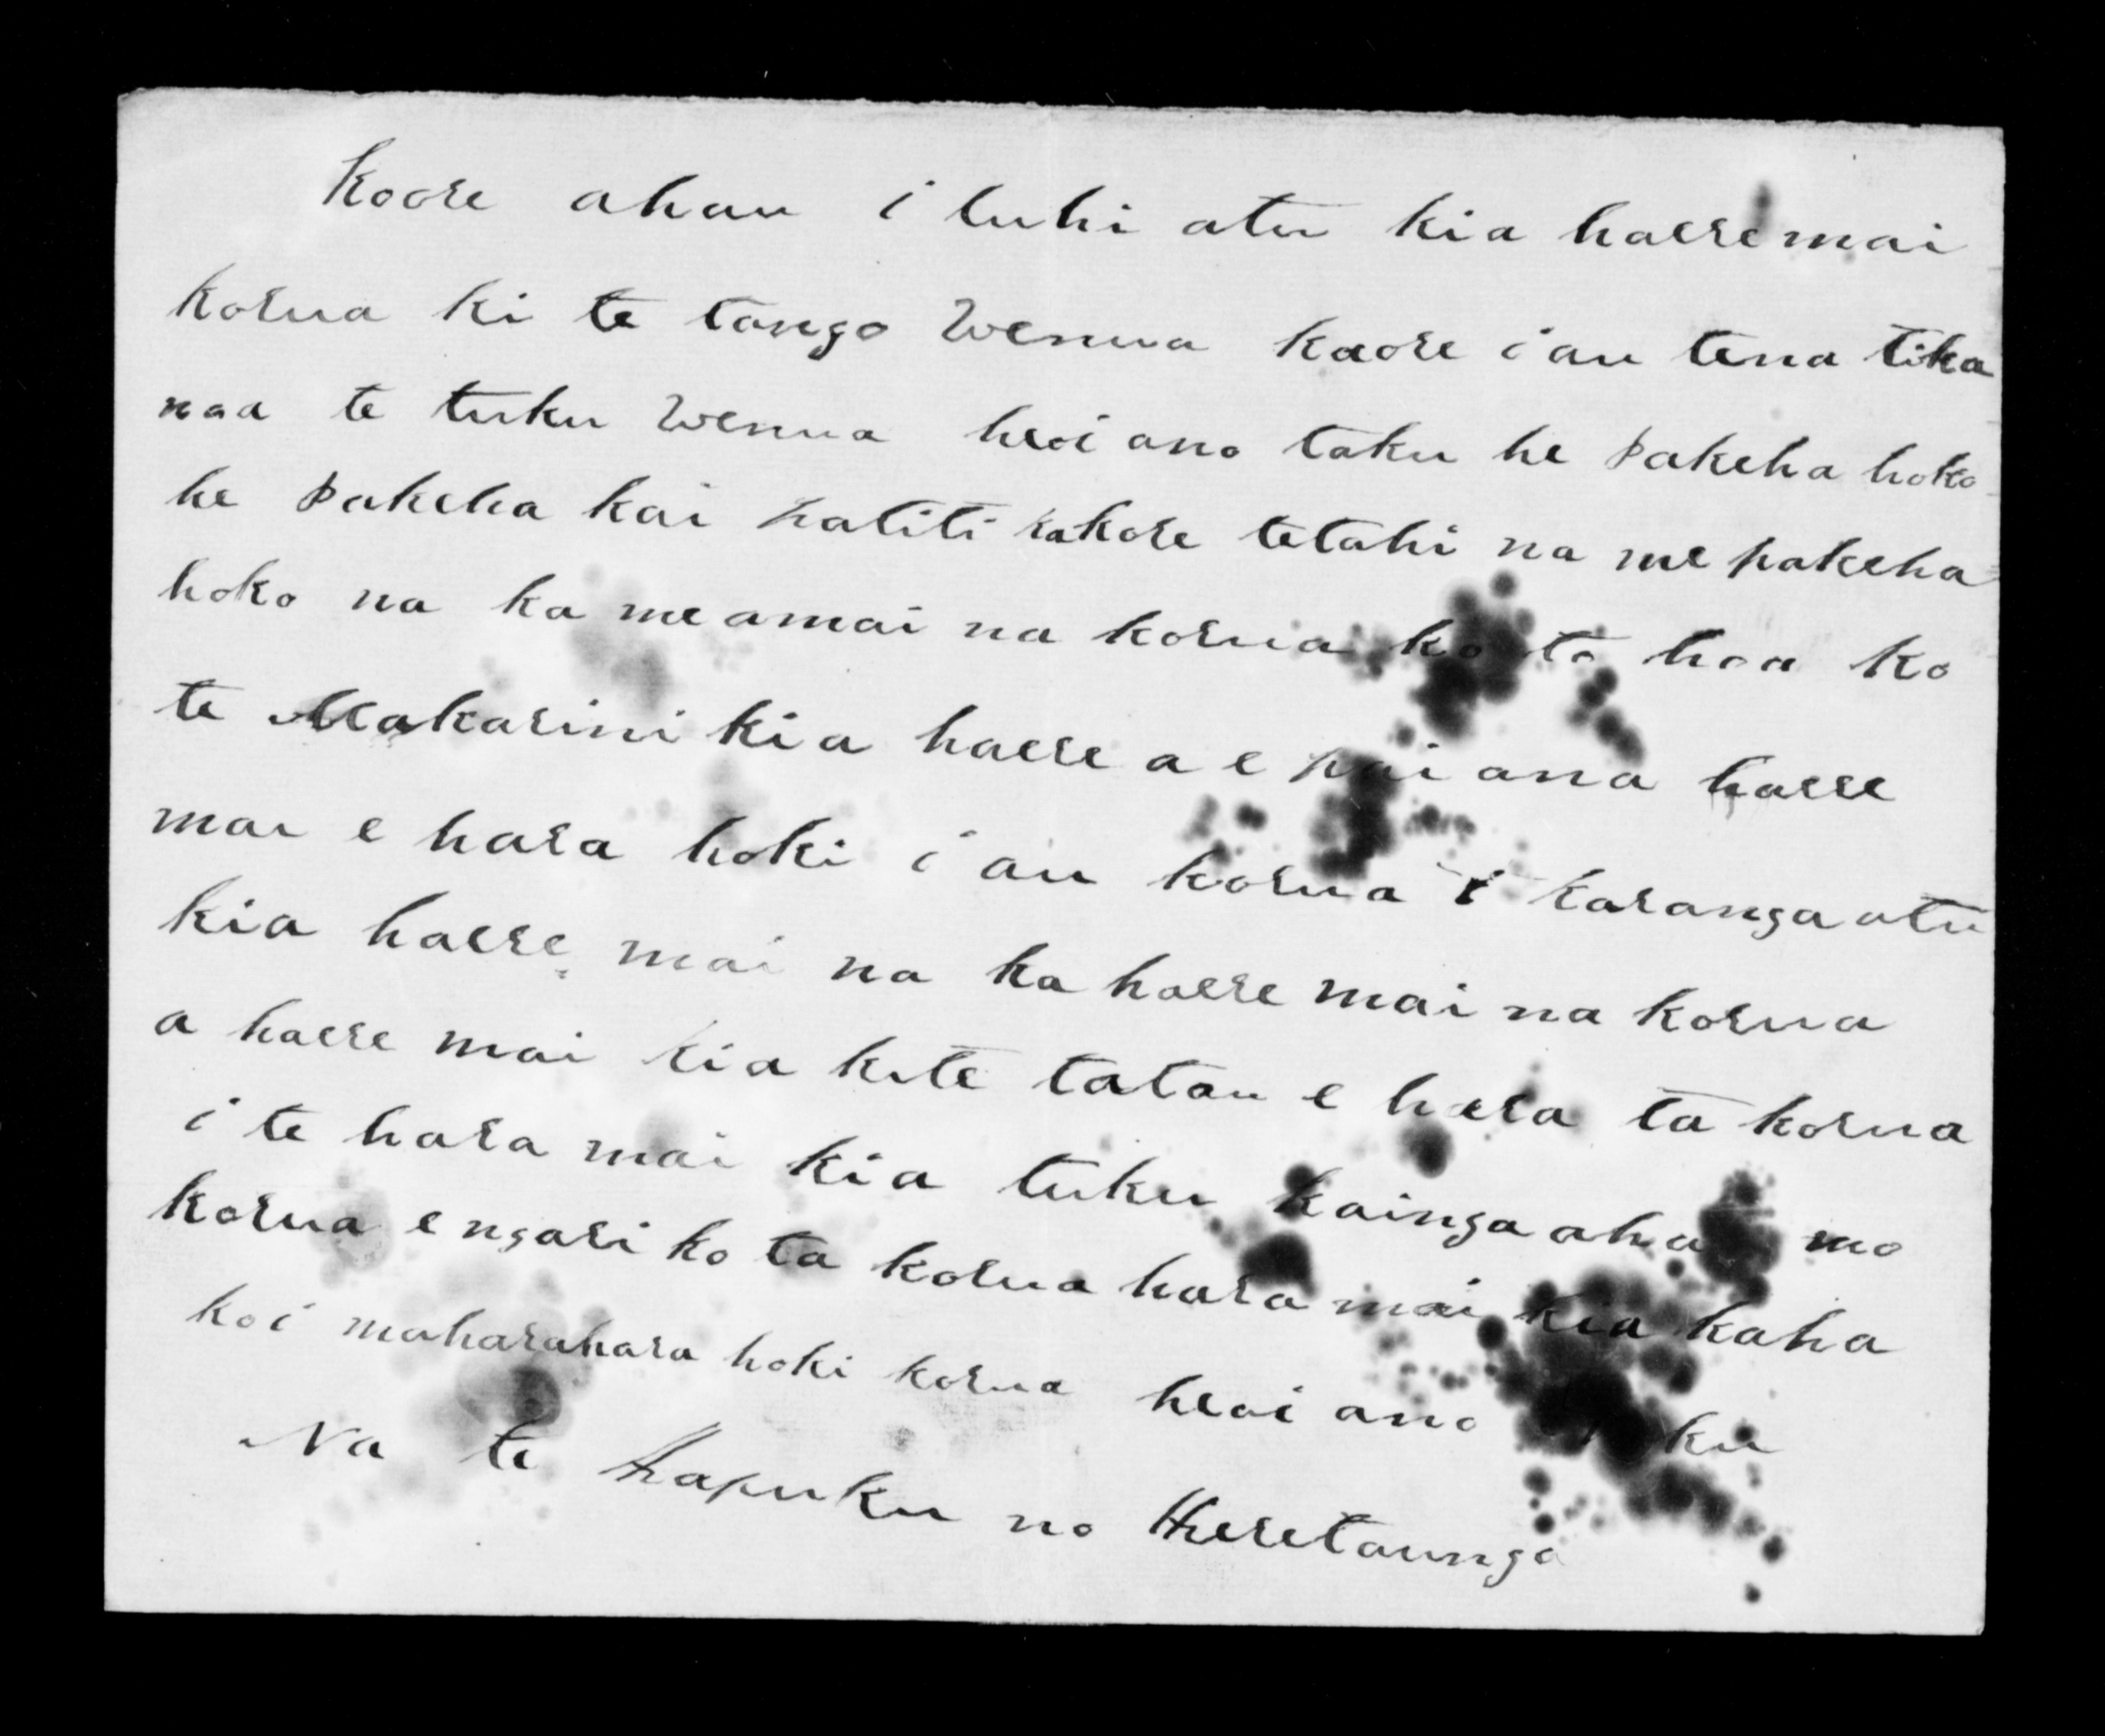 Koore ahau i tuhi atu kia haere mai
korua ki te tango Wenua kaore i au tena tika
naa te tuku Wenua heoi ano taku he pakeha hoko
he pakeha kai ratiti kakore tetahi na me pakeha
hoko na ka meamai na korua ko to hoa ko
te Makarini kia haere a e pai ana haere
mai e hara hoki i au korua i karanga atu
kia haere mai na ka haere mai na korua
a haere mai kia kite tatou e hara ta korua
i te hara mai kia tuku kainga ahau mo
korua engari ko ta korua hara mai kia kaha
koi maharahara hoki korua heoi ano ku
Na te Hapuku no Heretaunga